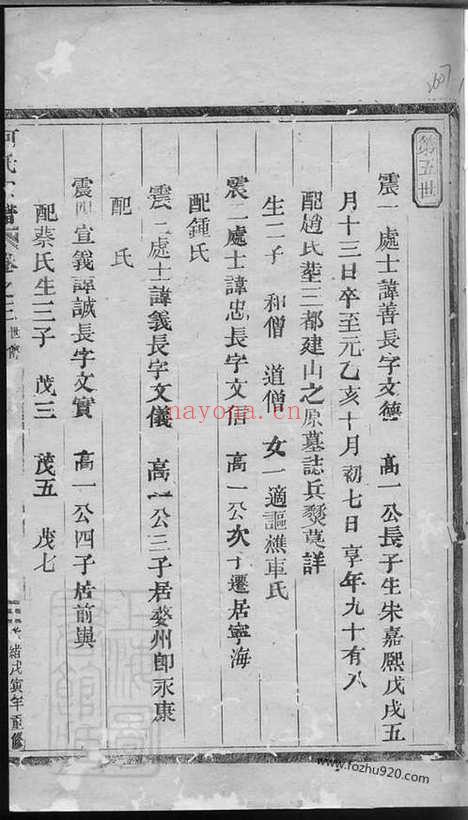 607
第五世
震一處士諱善長字文德 高一公長子生宋嘉熙戊戌五
月十三日卒至元乙亥十月初七日享年九十有八
配趙氏塟三都建山之原墓誌兵燹莫詳
生二子 和僧 道僧 女一適謳樵車氏
震二處士諱忠長字文信 高一公次子遷居寧海
配鍾氏
震三處士諱義長字文儀 高一公三子居婺州卽永康
配 氏
震四宣義諱誠長字文實 高一公四子居前與
配蔡氏生三子 茂三 茂五 茂七
何氏 譜 卷之三 世
緒戊寅年重修
nayona.cn
www.fozhu920.com